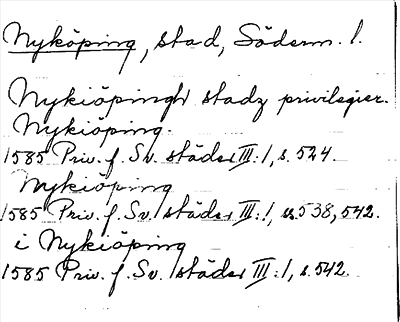 Nyköping, stad, Söderm. l.
Nykiöpingh stadz privilegier.
Nykiöping.
1585 Priv. f. Sv. städer III:1, s. 524.
Nykiöping
1585 Priv. f. Sv. städer III:1, ss. 538, 542.
i Nykiöping
1585 Priv. f. Sv. städer III:1, s. 542.